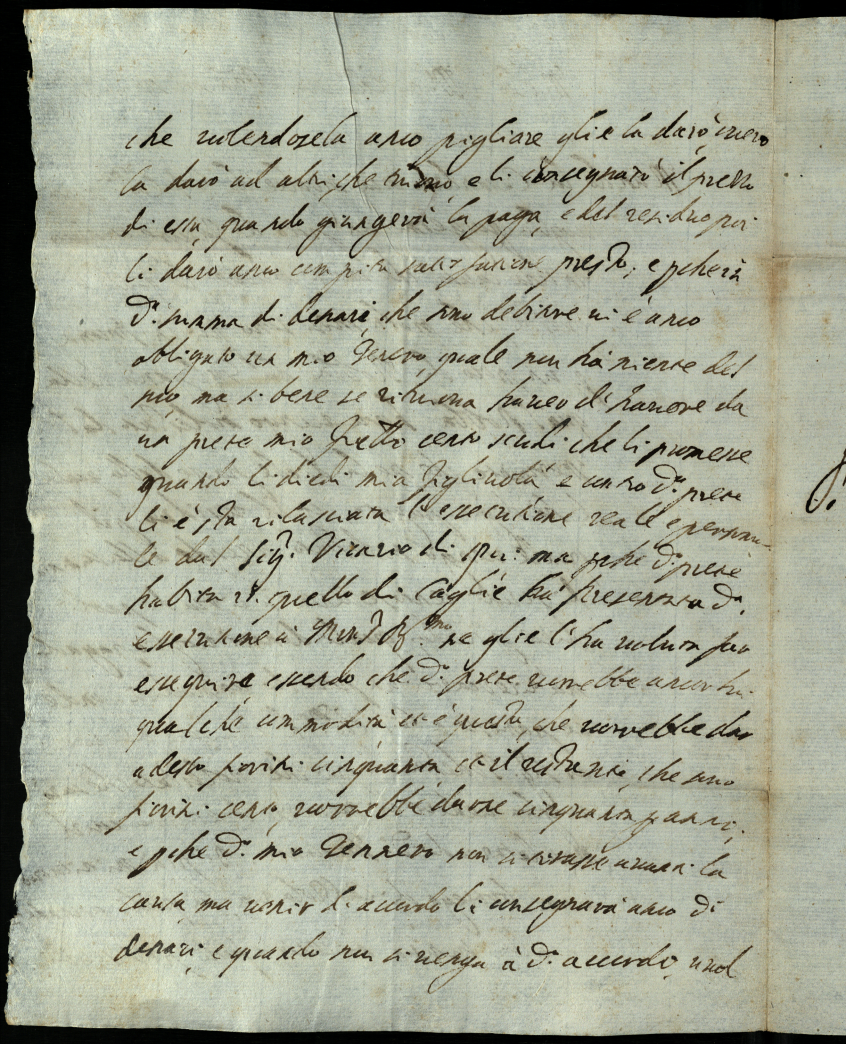 che volendosela anco pigliare glie la darò overo
la darò ad altri, che e li consegnarò il prezzo
di essa quando giungerà la paga, e del residuo poi
li darò anco compita satisfatione presto, e pche à
d.ª summa di denari, che sono debitore vi è anco
obligato un mio Genero, quale non hà niente del
mio, ma si bene se ritrova havere d'havere da
un prete mio frello cento scudi che li promesse
quando li diedi mia figliuola e contro d.º prete
li è sta rilasciata l'essecutione reale e persona-
le dal Sig.r Vicario di qui: ma pche d.º prete
habita in quello di Caglie hà presentata d.ª
essecutione à se glie l'ha voluta far
esseguire essendo che d.º prete vorrebbe ancor lui
qualche commodità et è questa, che vorrebbe dar
adesso fiorini cinquanta et il restante, che sono
fiorini cento, vorrebbe darne cinquanta p anno,
e pche d.º mio Gennero non ci tirasse avanti la
causa, ma venir d'accordo li consegnarà anco di
denari, e quando non si venga à d.º accordo, vuol